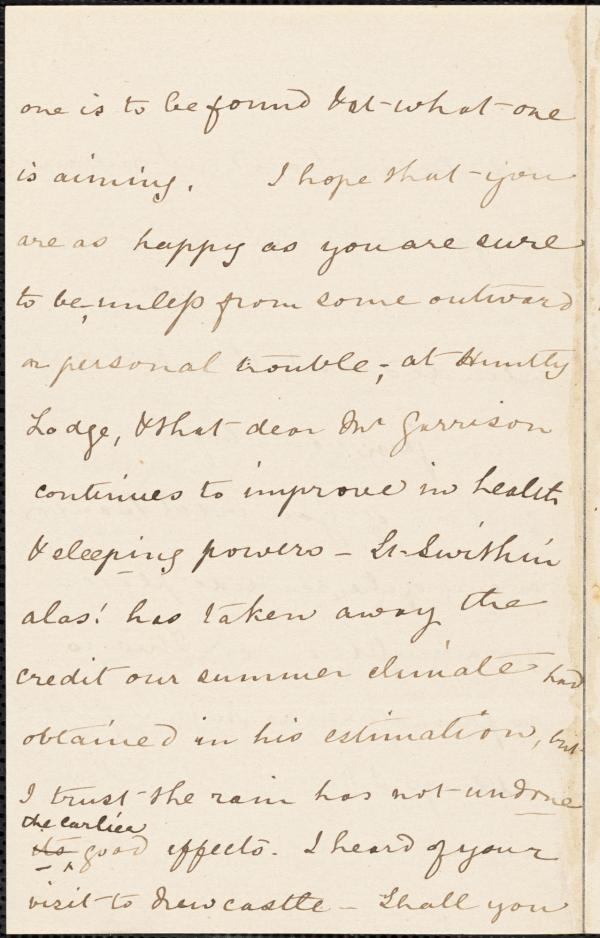 one is to be found & at what one
is aiming. I hope that you
are as happy as you are sure
to be, unless from some outward
or personal trouble, at Huntly
Lodge, & that dear Mr Garrison
continues to improve in health
& sleeping powers – St. Swithin
alas! has taken away the
credit our summer climate had
obtained in his estimation, but
I trust the rain has not undone
the earlier
its good effects. I heard of your
visit to Newcastle – Shall you